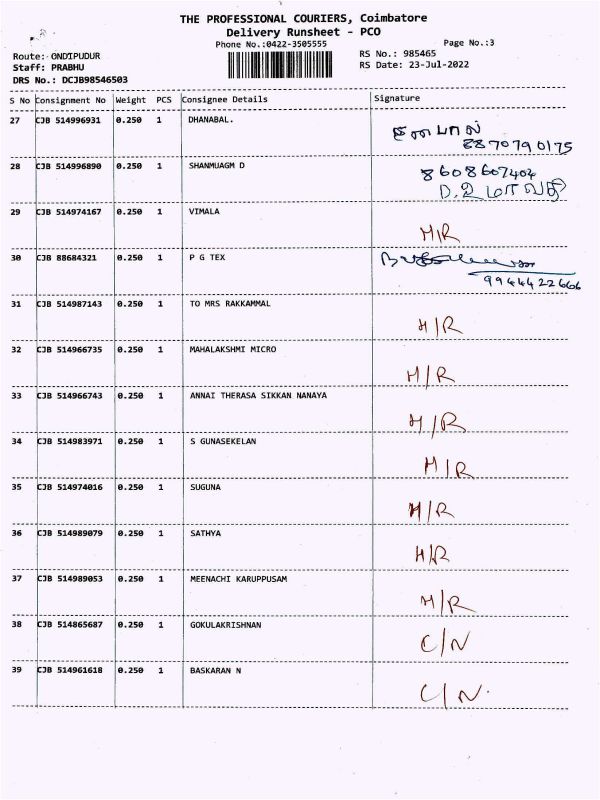 THE PROFESSIONAL COURIERS, Coimbatore
Delivery Runsheet - PCO
Phone No.:0422-3505555
Page No.:3
Route: ONDIPUDUR
RS No.: 985465
Staff: PRABHU
RS Date: 23-Jul-2022
DRS No.: DCJB98546503
S No Consignment No Weight PCS Consignee Details Signature
27 CJB 514996931 0.250 1 DHANABAL. தனபால்
8870790175
28 CJB 514996890 0.250 1 SHANMUAGM D 8608607404
D.உமாவதி
29 CJB 514974167 0.250 1 VIMALA H/R
30 CJB 88684321 0.250 1 P G TEX
9944422666
31 CJB 514987143 0.250 1 TO MRS RAKKAMMAL H/R
32 CJB 514966735 0.250 1 MAHALAKSHMI MICRO H/R
33 CJB 514966743 0.250 1 ANNAI THERASA SIKKAN NANAYA H/R
34 CJB 514983971 0.250 1 S GUNASEKELAN H/R
35 CJB 514974016 0.250 1 SUGUNA H/R
36 CJB 514989079 0.250 1 SATHYA H/R
37 CJB 514989053 0.250 1 MEENACHI KARUPPUSAM H/R
38 CJB 514865687 0.250 1 GOKULAKRISHNAN C/N
39 CJB 514961618 0.250 1 BASKARAN N C/N.